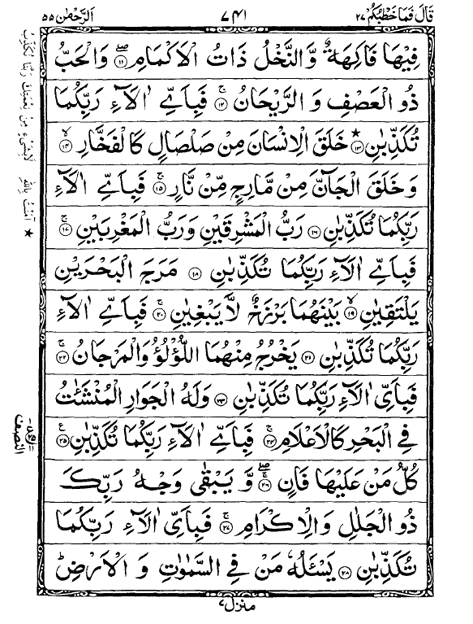 قَالَ فَمَا خَطْبُكُمْ ٢٧
٧٤١
اَلرَّحْمٰن ٥٥
فِيْهَا فَاكِهَةٌ وَّالنَّخْلُ ذَاتُ الْاَكْمَامِ ۝١١ وَالْحَبُّ
ذُو الْعَصْفِ وَ الرَّيْحَانُ ۝١٢ فَبِاَيِّ اٰلَآءِ رَبِّكُمَا
تُكَذِّبٰنِ ۝١٣ * خَلَقَ الْاِنْسَانَ مِنْ صَلْصَالٍ كَالْفَخَّارِ ۝١٤
وَ خَلَقَ الْجَآنَّ مِنْ مَّارِجٍ مِّنْ نَّارٍ ۝١٥ فَبِاَيِّ اٰلَآءِ
رَبِّكُمَا تُكَذِّبٰنِ ۝١٦ رَبُّ الْمَشْرِقَيْنِ وَرَبُّ الْمَغْرِبَيْنِ ۝١٧
فَبِاَيِّ اٰلَآءِ رَبِّكُمَا تُكَذِّبٰنِ ۝١٨ مَرَجَ الْبَحْرَيْنِ
يَلْتَقِيٰنِ ۝١٩ بَيْنَهُمَا بَرْزَخٌ لَّا يَبْغِيٰنِ ۝٢٠ فَبِاَيِّ اٰلَآءِ
رَبِّكُمَا تُكَذِّبٰنِ ۝٢١ يَخْرُجُ مِنْهُمَا اللُّؤْلُؤُ وَالْمَرْجَانُ ۝٢٢
فَبِاَيِّ اٰلَآءِ رَبِّكُمَا تُكَذِّبٰنِ ۝٢٣ وَلَهُ الْجَوَارِ الْمُنْشَـٰٔتُ
فِي الْبَحْرِ كَالْاَعْلَامِ ۝٢٤ فَبِاَيِّ اٰلَآءِ رَبِّكُمَا تُكَذِّبٰنِ ۝٢٥
كُلُّ مَنْ عَلَيْهَا فَانٍ ۝٢٦ وَّ يَبْقٰى وَجْهُ رَبِّكَ
ذُو الْجَلٰلِ وَالْاِكْرَامِ ۝٢٧ فَبِاَيِّ اٰلَآءِ رَبِّكُمَا
تُكَذِّبٰنِ ۝٢٨ يَسْـَٔلُهٗ مَنْ فِي السَّمٰوٰتِ وَ الْاَرْضِ ؕ
النصف
منزل ٧